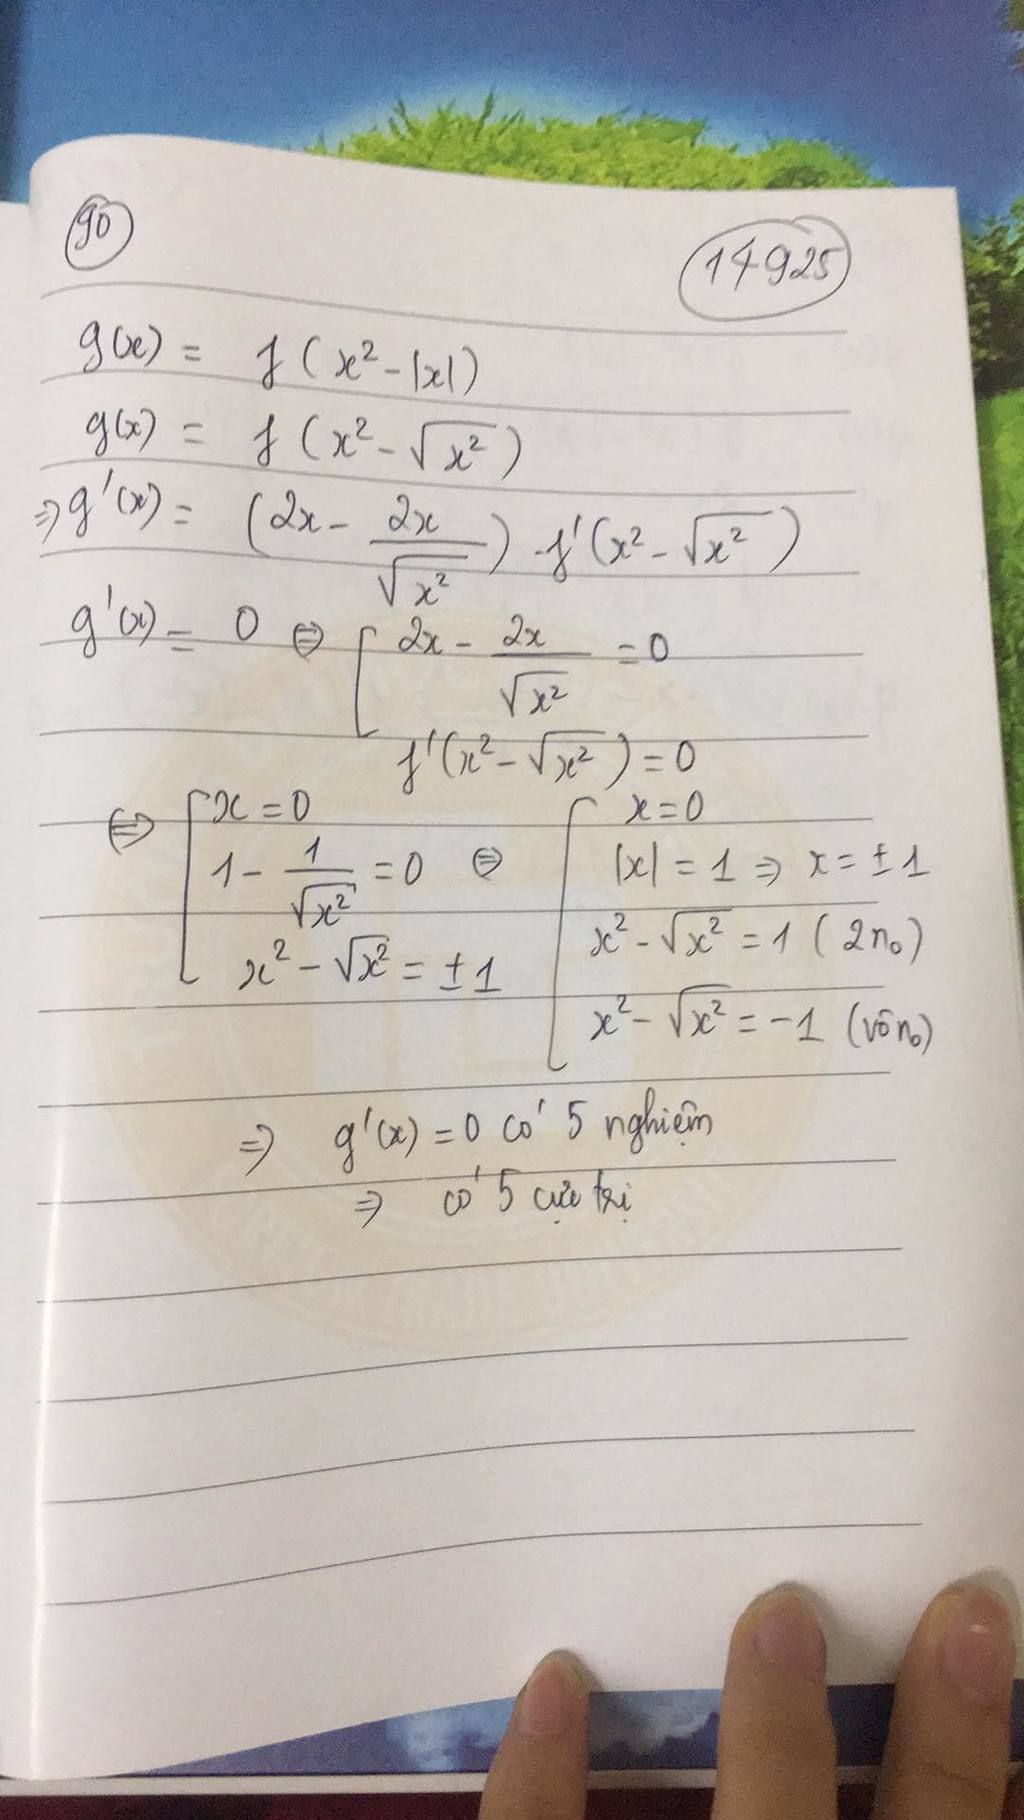 90
14925
g(x) = f(x² - |x|)
g(x) = f(x² - √x²)
⇒ g'(x) = (2x - 2x/√x²) . f'(x² - √x²)
g'(x) = 0 ⇔ [ 2x - 2x/√x² = 0
f'(x² - √x²) = 0
⇔ [ x = 0 [ x = 0
1 - 1/√x² = 0 ⇔ |x| = 1 ⇒ x = ±1
x² - √x² = ±1 x² - √x² = 1 (2n₀)
x² - √x² = -1 (vô n₀)
⇒ g'(x) = 0 có 5 nghiệm
⇒ có 5 cực trị